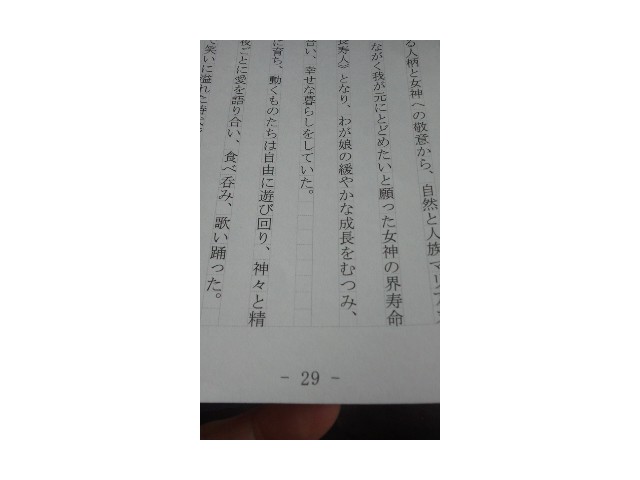 る人柄と女神への敬意から、自然と人族マリア
ながく我が元にとどめたいと願った女神の界寿命
長寿人》となり、わが娘の緩やかな成長をむつみ、
合い、幸せな暮らしをしていた。
に育ち、動くものたちは自由に遊び回り、神々と精
夜ごとに愛を語り合い、食べ呑み、歌い踊った。
で笑いに溢れた
- 29 -